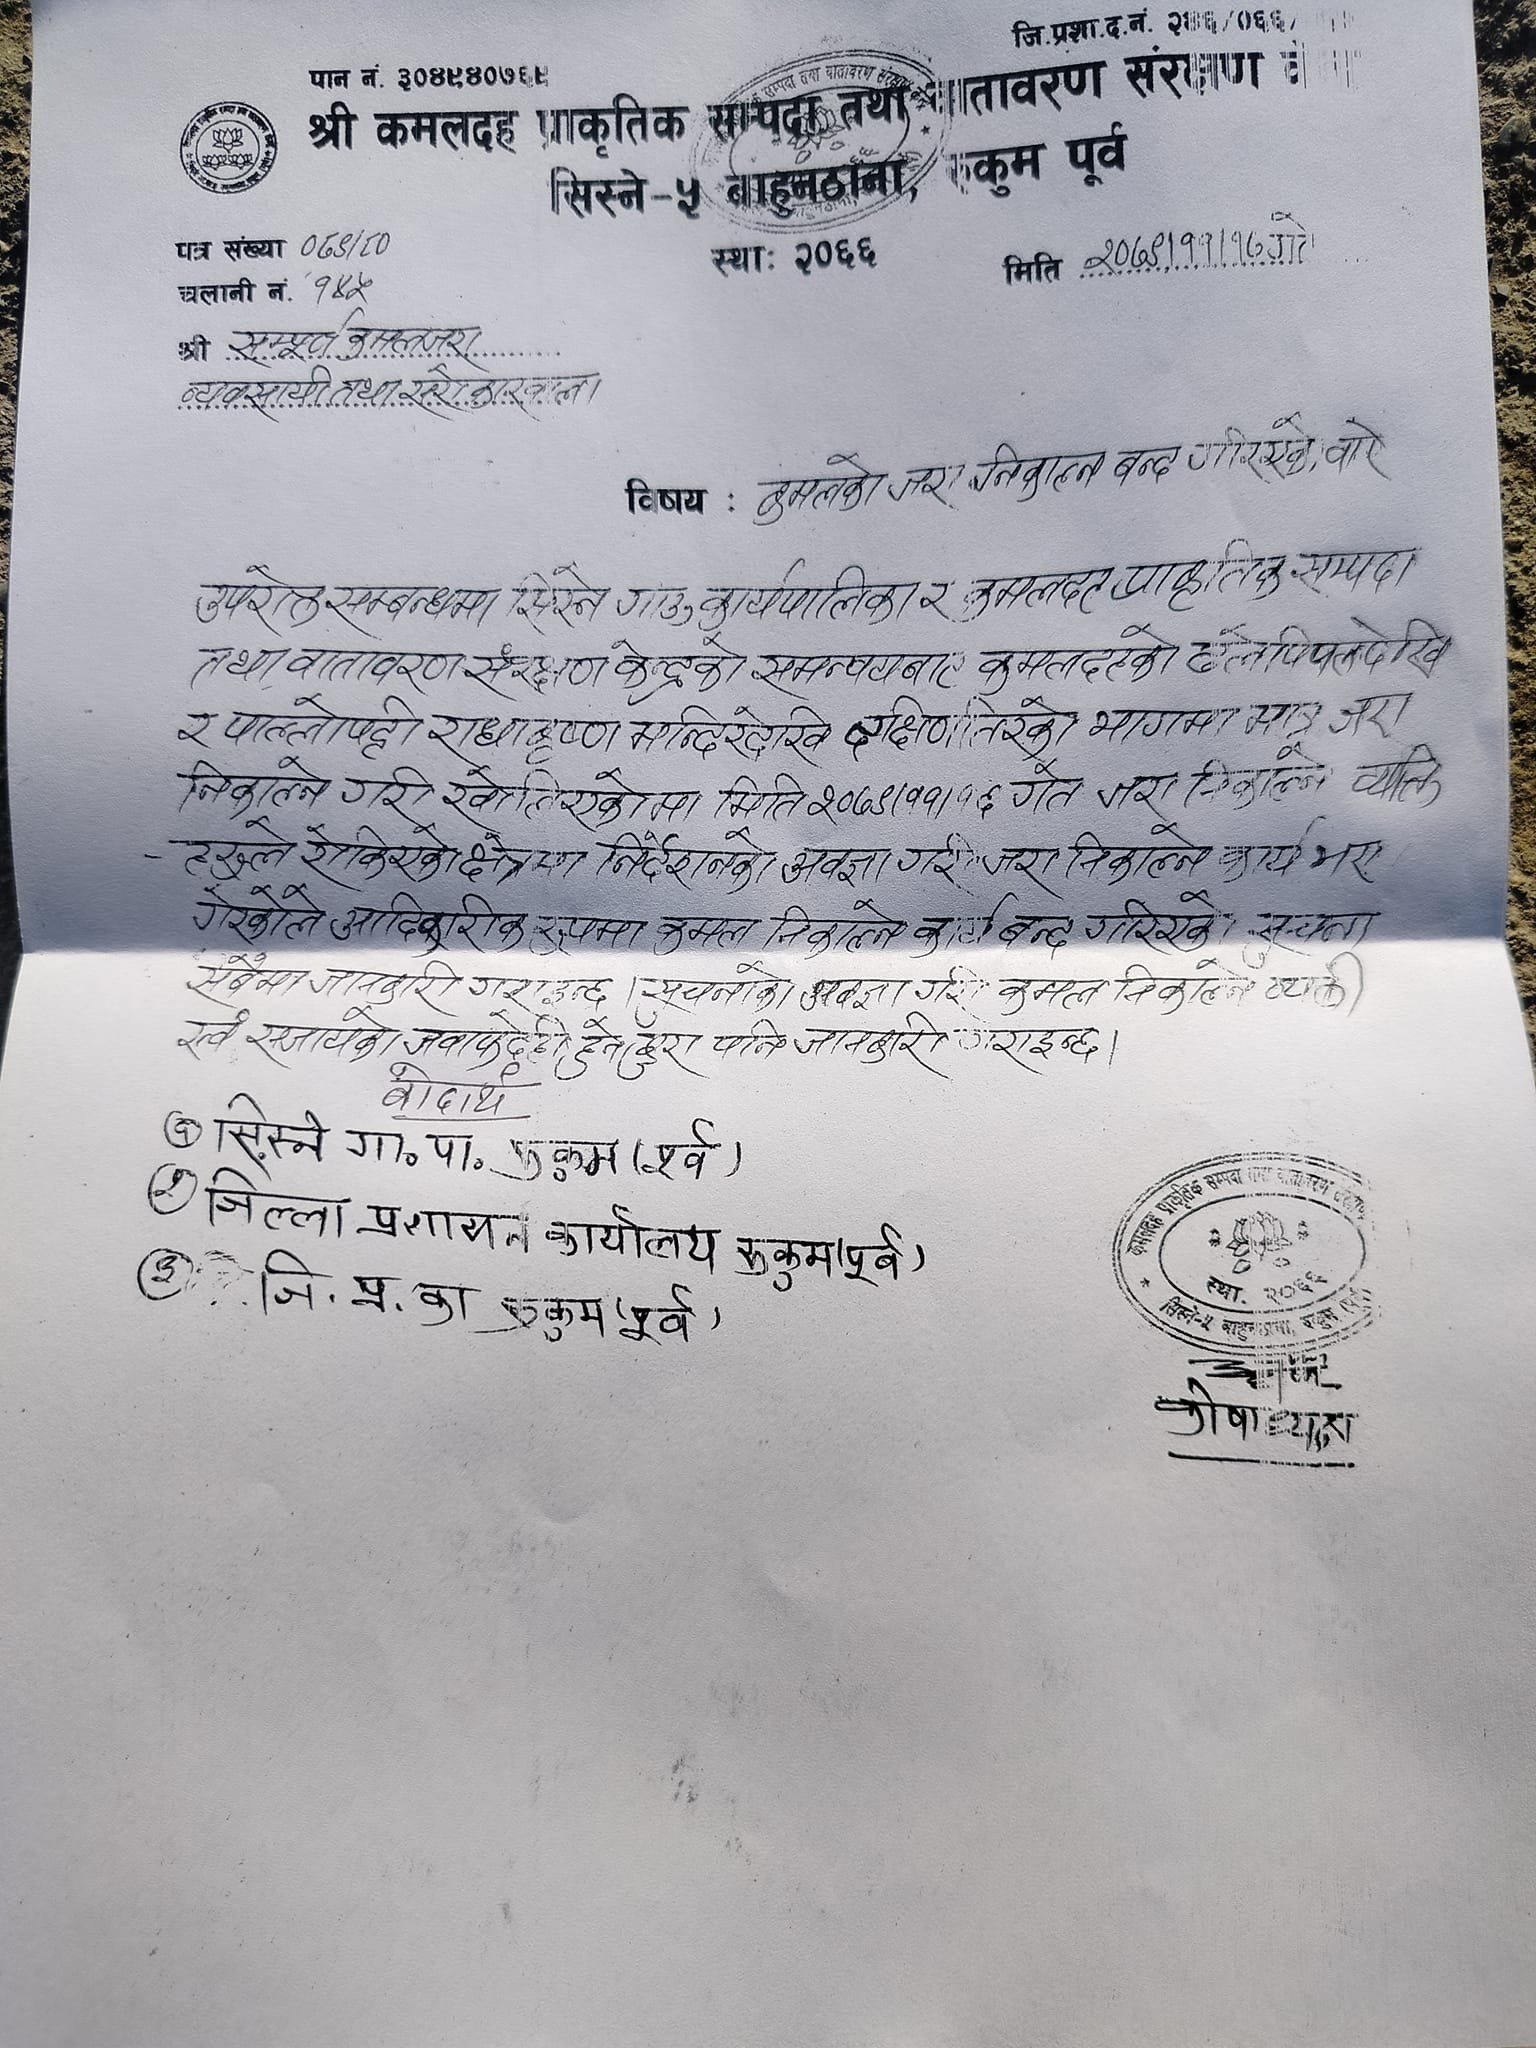 जि.प्रशा.द.नं. २७६/०६६/
पान नं. ३०४९४०७६९
श्री कमलदह प्राकृतिक सम्पदा तथा वातावरण संरक्षण
सिस्ने-५ बाहुनठाना, रुकुम पूर्व
पत्र संख्या ०७९/८०
स्था: २०६६
मिति २०७९।११।१७ गते
चलानी नं. १४५
श्री सम्पूर्ण कमलजरा
व्यवसायी तथा सरोकारवाला
विषय : कमलको जरा निकाल्न बन्द गरिएको बारे
उपरोक्त सम्बन्धमा सिस्ने गाउ कार्यपालिका र कमलदह प्राकृतिक सम्पदा
तथा वातावरण संरक्षण केन्द्रको समन्वयबाट कमलदहको देखि
र पाल्लोपट्टी राधाकृष्ण मन्दिरदेखि दक्षिणतिरको भागमा मात्र जरा
निकाल्ने गरी खोलिएकोमा मिति २०७९।११।१६ गते जरा निकाल्ने व्यक्ति
हरुले रोकिएको क्षेत्रमा निर्देशनको अवज्ञा गरी जरा निकाल्ने कार्य भए
गरेकोले आदिकारीक रुपमा कमल निकाल्ने कार्य बन्द गरिएको सुचना
सबैमा जानकारी गराइन्छ । सूचनाको अवज्ञा गरी कमल निकाल्ने व्यक्ती
स्वं सजायको जवाफदेही हुने कुरा पनि जानकारी गराइन्छ।
बोदार्थ
१ सिस्ने गा.पा. रुकुम (पूर्व)
२ जिल्ला प्रशासन कार्यालय रुकुम (पूर्व)
३ जि. प्र. का रुकुम (पूर्व)
कमलदह प्राकृतिक सम्पदा तथा वातावरण संरक्षण
स्था. २०६६
सिस्ने-५ बाहुनठाना, रुकुम
कोषाध्यक्ष